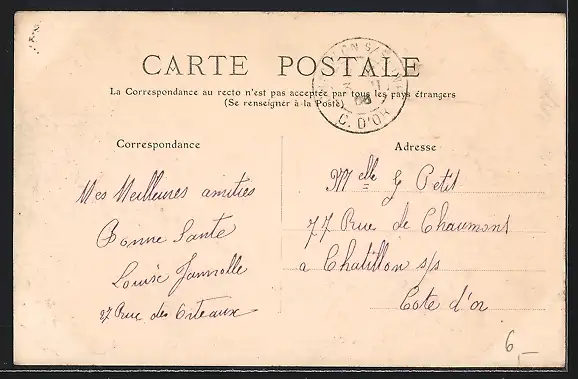 CARTE POSTALE
La Correspondance au recto n'est pas acceptée par tous les pays étrangers
(Se renseigner à la Poste)
C. D'OR
Correspondance
Adresse
Mes Meilleures amitiés
Bonne Santé
Louise
27 Rue des Orteaux
Melle G Petit
77 Rue de Chaumont
a Chatillon s/s
Cote d'or
6,-